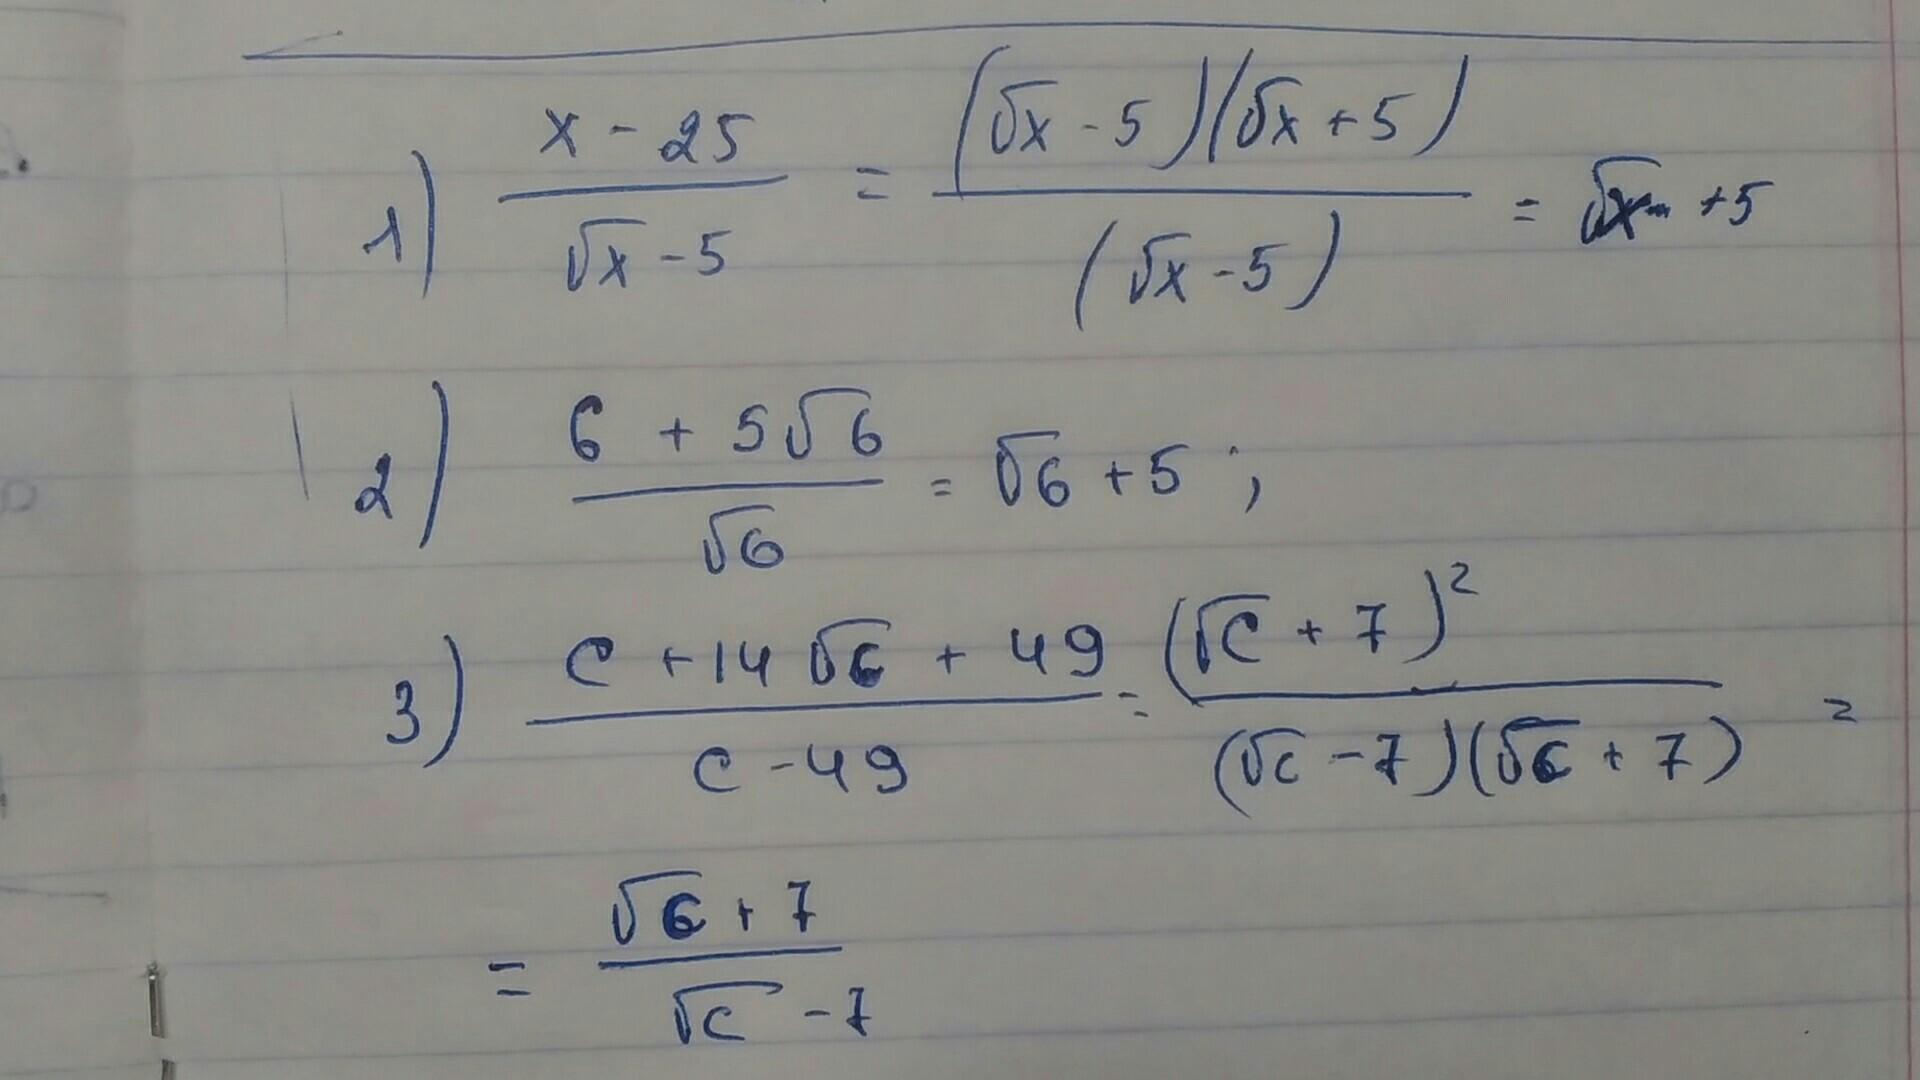 1) (x - 25)/(√x - 5) = ((√x - 5)(√x + 5))/((√x - 5)) = √x + 5
2) (6 + 5√6)/√6 = √6 + 5 ;
3) (c + 14√c + 49)/(c - 49) = (√c + 7)²/((√c - 7)(√c + 7)) =
= (√c + 7)/(√c - 7)